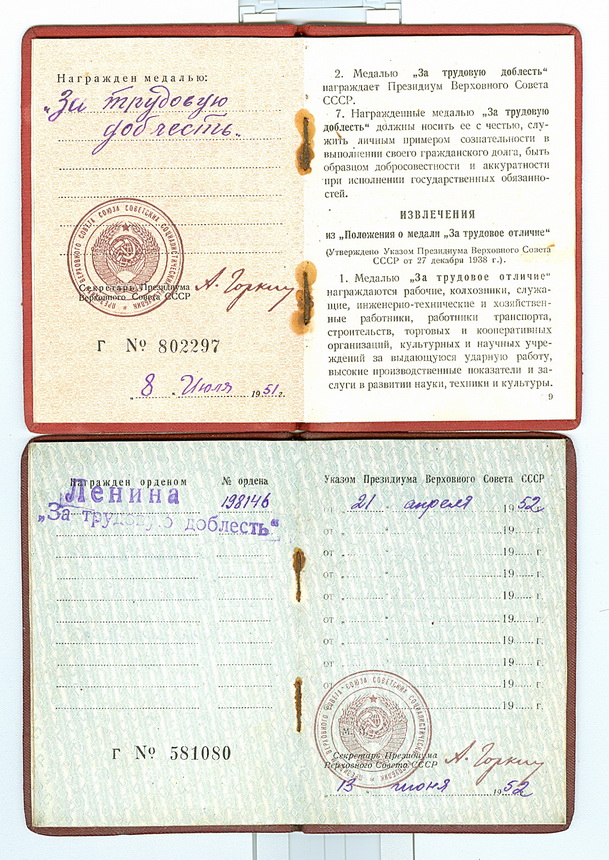 Награжден медалью:
„За трудовую
доблесть"
СОЮЗА СОВЕТСКИХ СОЦИАЛИСТИЧЕСКИХ
Секретарь Президиума
Верховного Совета СССР
А. Горкин
Г № 802297
„ 8 " Июля 1951 г.
2. Медалью „За трудовую доблесть“
награждает Президиум Верховного Совета
СССР.
7. Награжденные медалью „За трудовую
доблесть“ должны носить ее с честью, слу-
жить личным примером сознательности в
выполнении своего гражданского долга, быть
образцом добросовестности и аккуратности
при исполнении государственных обязанно-
стей.
ИЗВЛЕЧЕНИЯ
из „Положения о медали „За трудовое отличие“
(Утверждено Указом Президиума Верховного Совета
СССР от 27 декабря 1938 г.).
1. Медалью „За трудовое отличие“
награждаются рабочие, колхозники, служа-
щие, инженерно-технические и хозяйствен-
ные работники, работники транспорта,
строительств, торговых и кооперативных
организаций, культурных и научных учре-
ждений за выдающуюся ударную работу,
высокие производственные показатели и за-
слуги в развитии науки, техники и культуры.
9
Награжден орденом № ордена
Ленина 198146
„За трудовую доблесть“
Г № 581080
Указом Президиума Верховного Совета СССР
от „ 21 апреля 1952 г.
от „ 19 г.
от „ 19 г.
от „ 19 г.
от „ 19 г.
от „ 19 г.
от „ 19 г.
от „ 19 г.
от „ 19 г.
от „ 19 г.
СОЮЗА СОВЕТСКИХ СОЦИАЛИСТИЧЕСКИХ
М.
Секретарь Президиума
Верховного Совета СССР
А. Горкин
13 " июня 1952